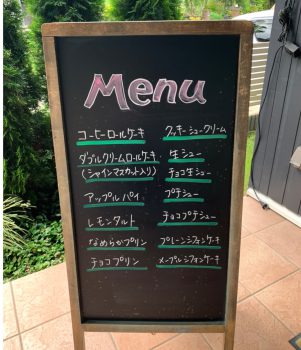 Menu
コーヒーロールケーキ
ダブルクリームロールケーキ
(シャインマスカット入り)
アップルパイ
レモンタルト
なめらかプリン
チョコプリン
クッキーシュークリーム
生シュー
チョコ生シュー
プチシュー
チョコプチシュー
プレーンシフォンケーキ
メープルシフォンケーキ